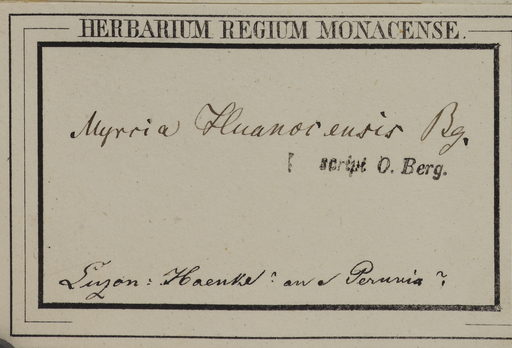 HERBARIUM REGIUM MONACENSE.
Myrcia Huanocensis Bg.
script O. Berg.
Luzon: Haenke? an e Peruvia?